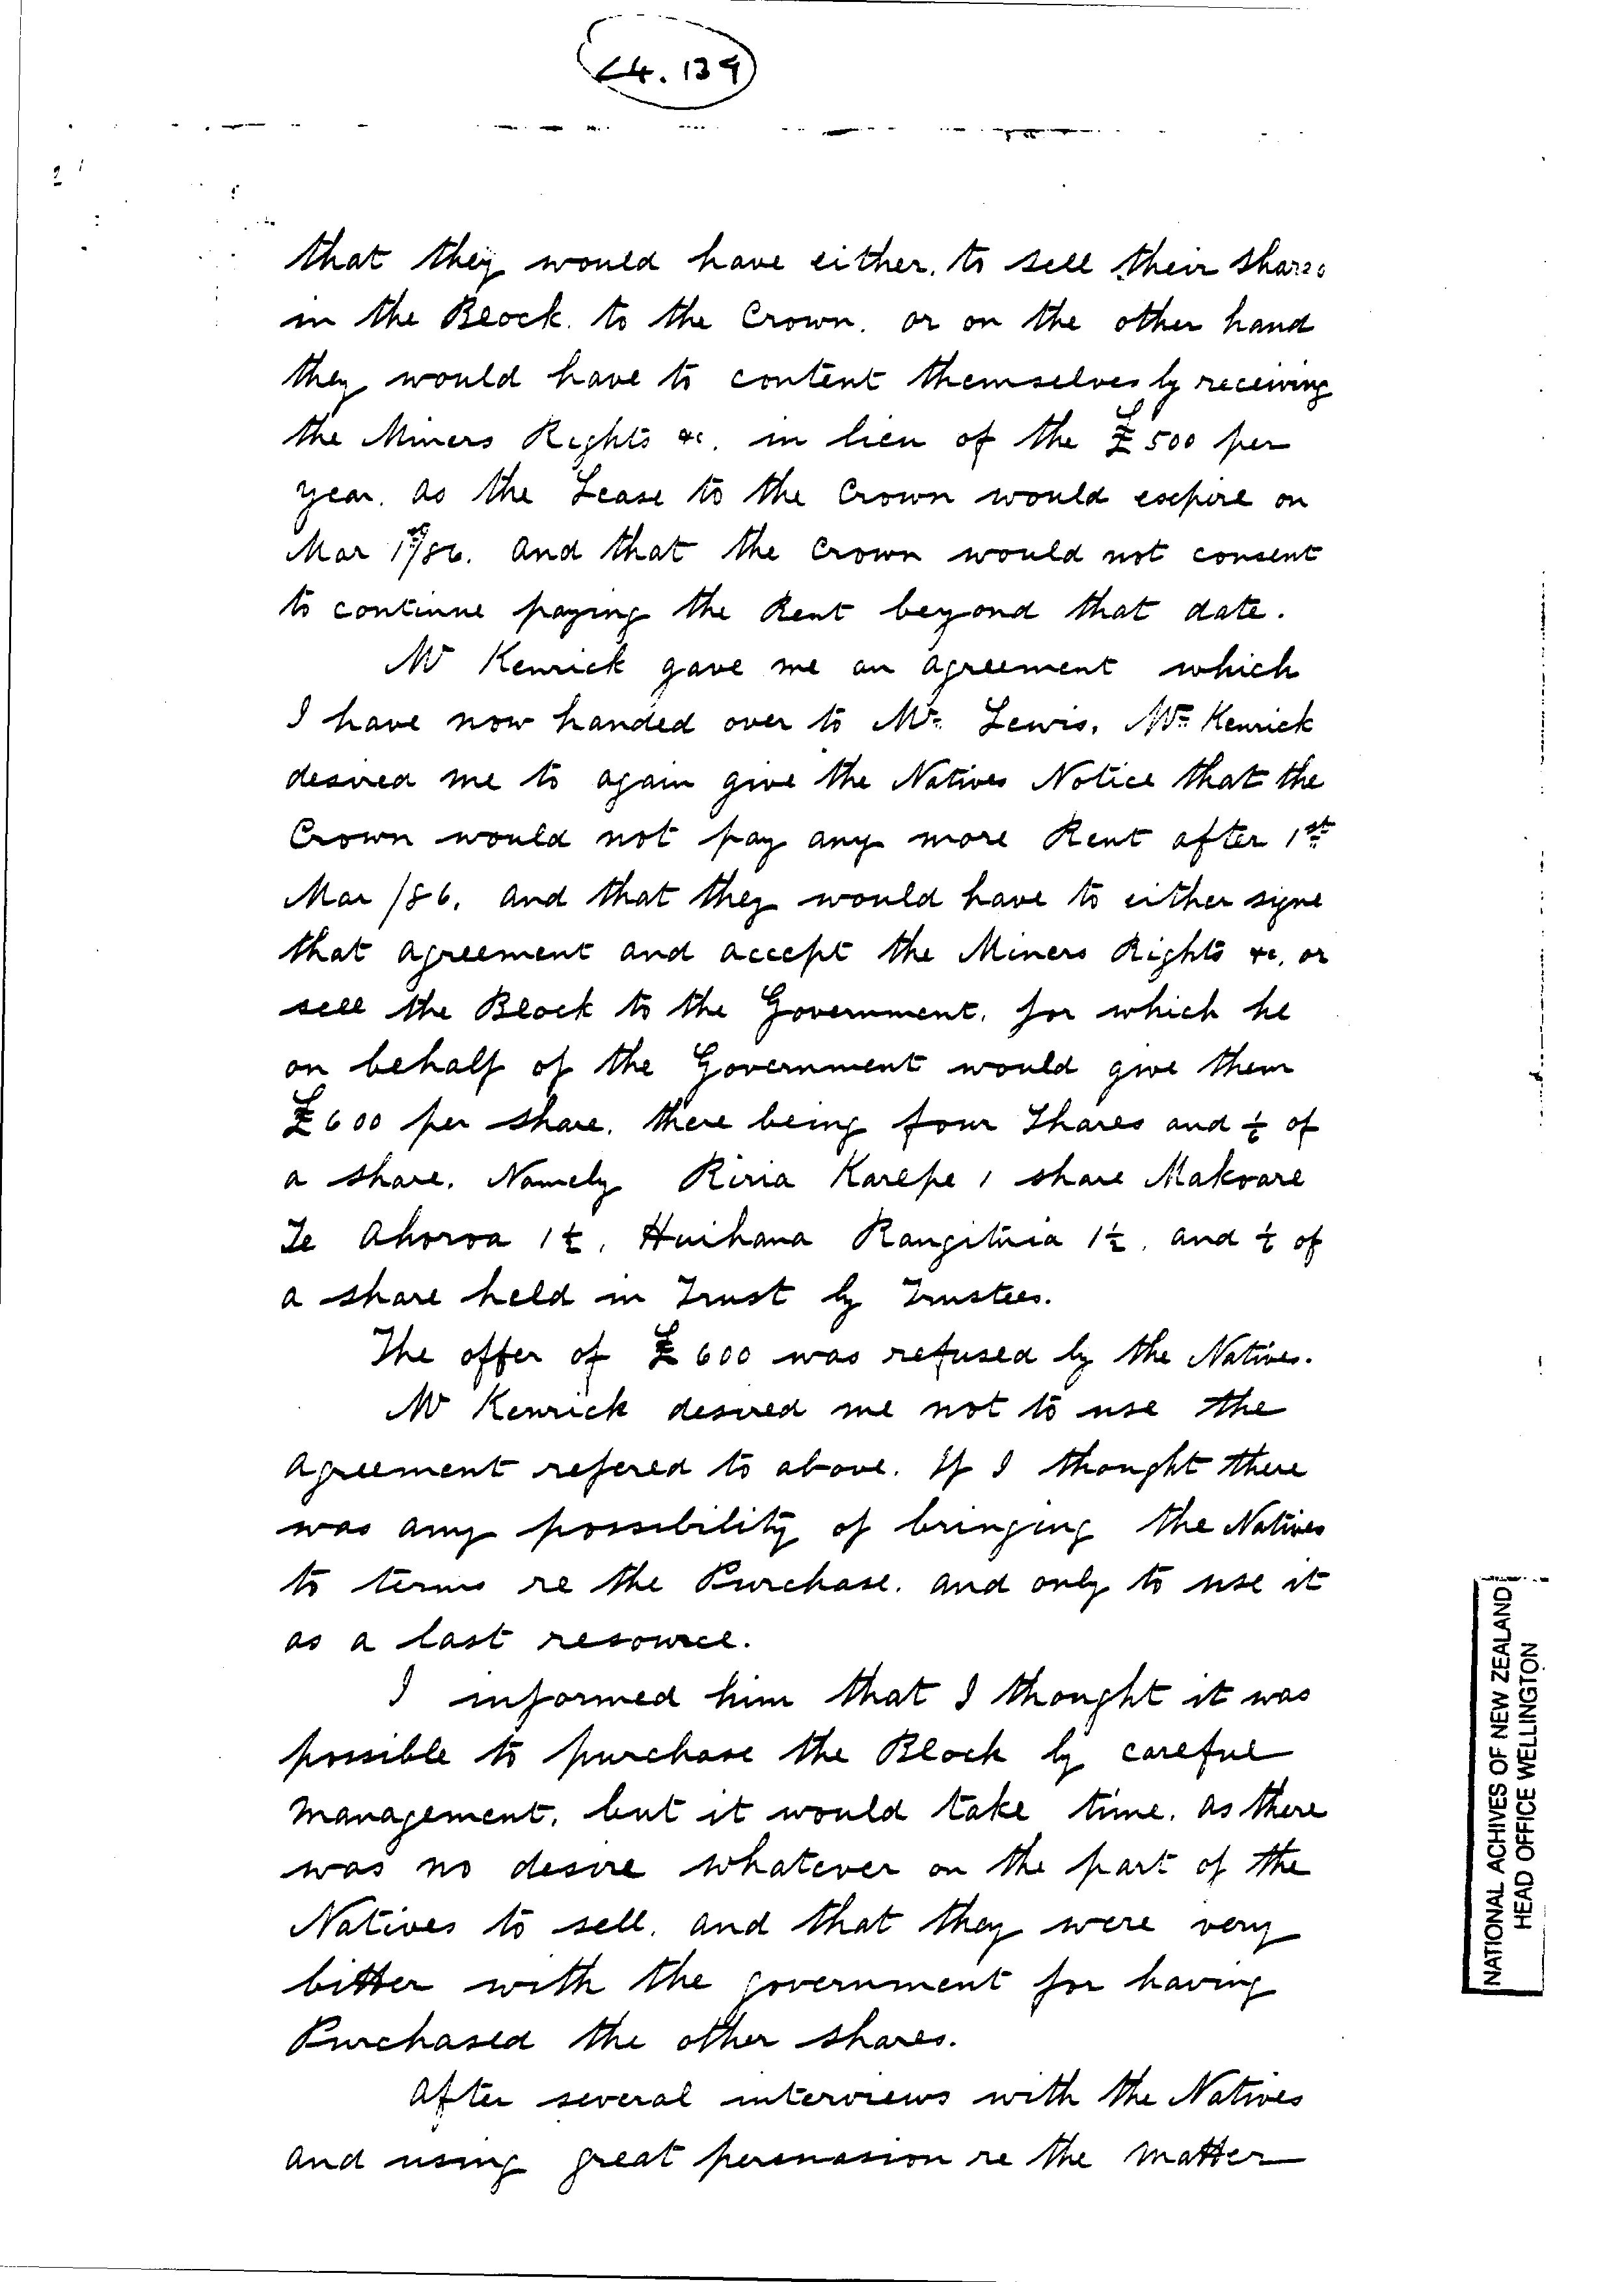 L4.139
that they would have either. to sell their shares
in the Block. to the Crown. or on the other hand
they would have to content themselves by receiving
the Miners Rights &c. in lieu of the £500 per
year. as the Lease to the Crown would expire on
Mar 1st/86. and that the Crown would not consent
to continue paying the Rent beyond that date.
Mr Kenrick gave me an agreement which
I have now handed over to Mr. Lewis. Mr. Kenrick
desired me to again give the Natives Notice that the
Crown would not pay any more Rent after 1st
Mar /86. and that they would have to either signe
that agreement and accept the Miners Rights &c. or
sell the Block to the Government. for which he
on behalf of the Government would give them
£600 per share. there being four Shares and ⅙ of
a share. Namely Riria Karepe 1 share Makoare
Te Ahoroa 1½. Huihana Rangituia 1½. and ⅙ of
a share held in Trust by Trustees.
The offer of £600 was refused by the Natives.
Mr Kenrick desired me not to use the
agreement refered to above. If I thought there
was any possibility of bringing the Natives
to terms re the Purchase. and only to use it
as a last resource.
I informed him that I thought it was
possible to purchase the Block by careful
management. but it would take time. as there
was no desire whatever on the part of the
Natives to sell. and that they were very
bitter with the government for having
Purchased the other shares.
After several interviews with the Natives
and using great persuasion re the matter
NATIONAL ACHIVES OF NEW ZEALAND
HEAD OFFICE WELLINGTON